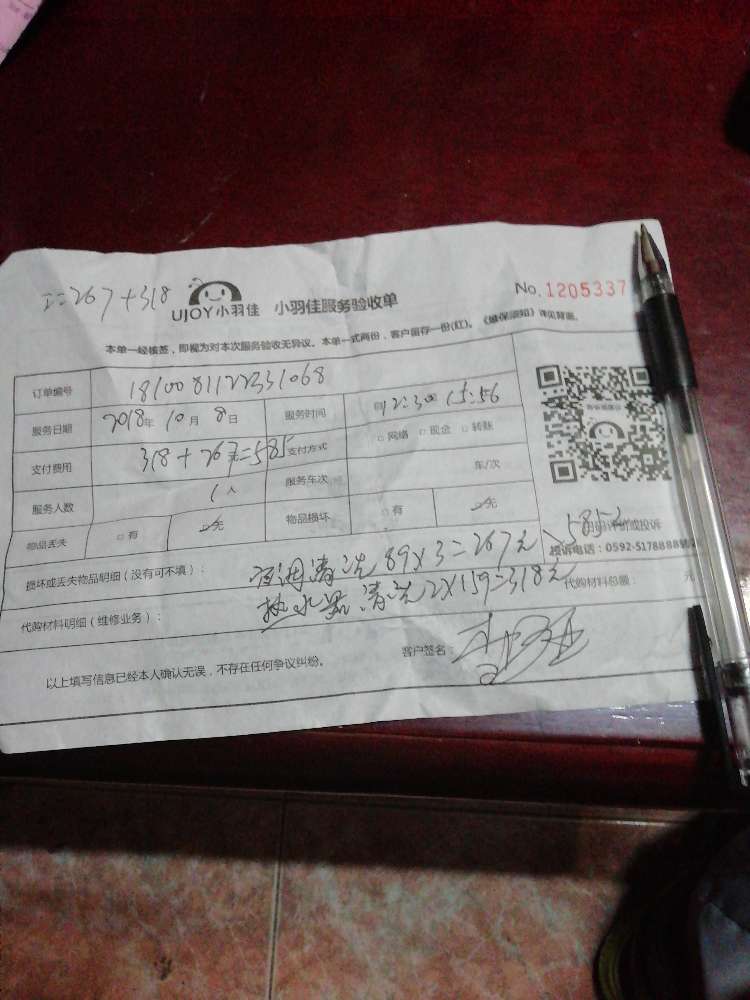 工=267+318
UJOY小羽佳 小羽佳服务验收单 No.1205337
本单一经核签，即视为对本次服务验收无异议。本单一式两份，客户留存一份(红)。《维保须知》详见背面。
订单编号 1810081122331068
服务日期 2018年10月8日 服务时间 12:30 15:56
支付费用 318+267=585 支付方式 □网络 □现金 □转账
服务人数 1人 服务车次 车/次
物品丢失 □有 ☑无 物品损坏 □有 ☑无
扫码评价或投诉
投诉电话：0592-5178888转
损坏或丢失物品明细（没有可不填）： 空调清洗89×3=267元 585元
代购材料明细（维修业务）： 热水器清洗2×159=318元 代购材料总额： 元
以上填写信息已经本人确认无误，不存在任何争议纠纷。 客户签名：